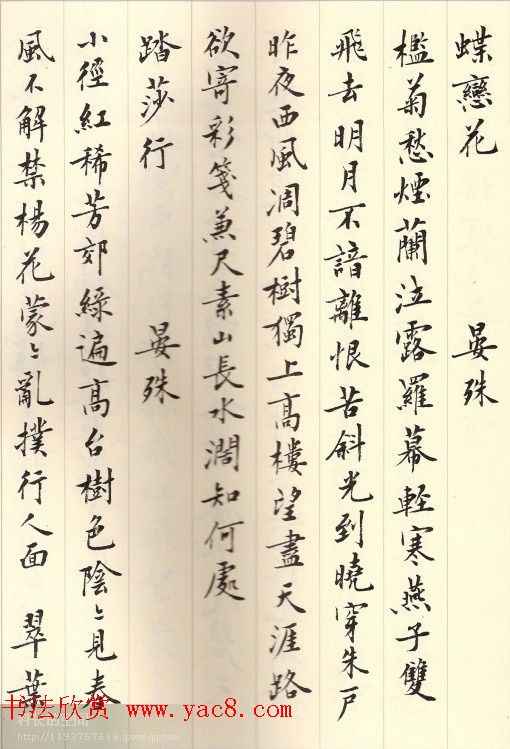 蝶戀花 晏殊
檻菊愁煙蘭泣露羅幕輕寒燕子雙
飛去明月不諳離恨苦斜光到曉穿朱戶
昨夜西風凋碧樹獨上高樓望盡天涯路
欲寄彩箋兼尺素山長水濶知何處
踏莎行 晏殊
小徑紅稀芳郊綠遍高台樹色陰〻見春
風不解禁楊花蒙〻亂撲行人面 翠葉
书法欣赏 www.yac8.com
http://1193767618.qzone.qq.com